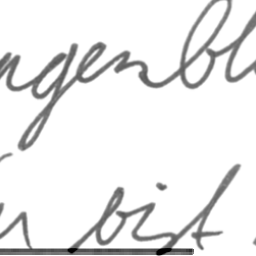 ngenbl
u bist